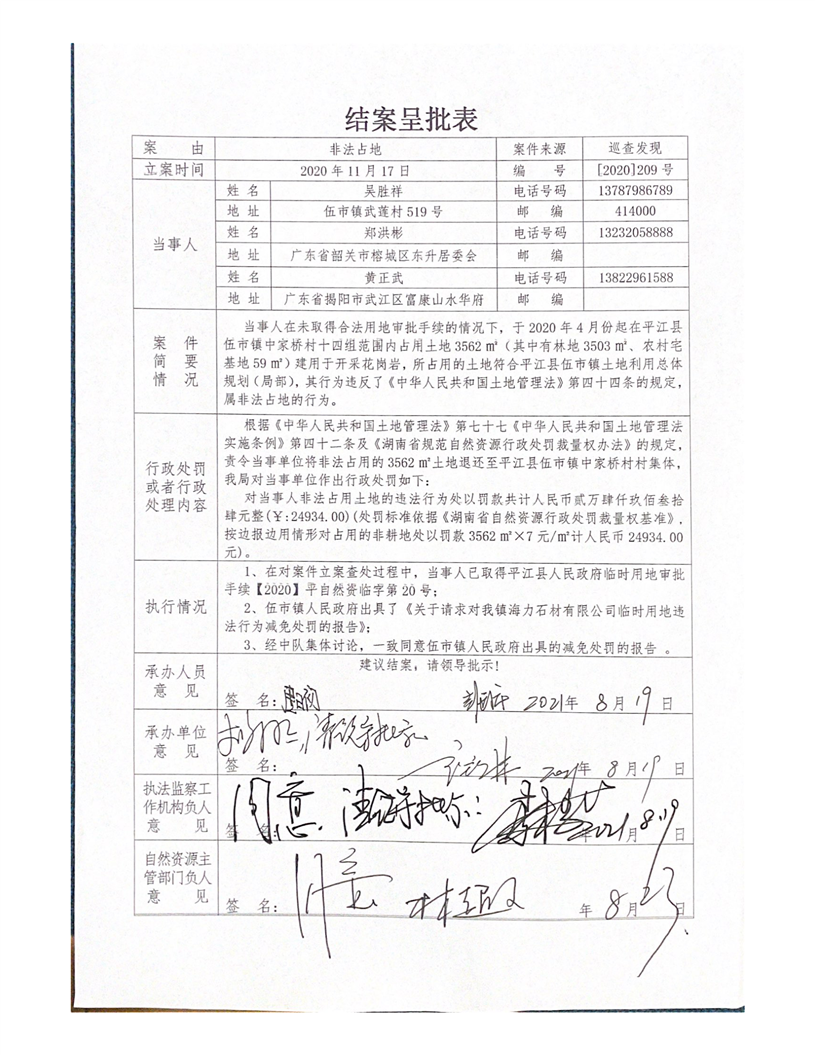 结案呈批表
案 由 非法占地 案件来源 巡查发现
立案时间 2020 年 11 月 17 日 编 号 [2020]209 号
当事人 姓 名 吴胜祥 电话号码 13787986789
地 址 伍市镇武莲村 519 号 邮 编 414000
姓 名 郑洪彬 电话号码 13232058888
地 址 广东省韶关市榕城区东升居委会 邮 编
姓 名 黄正武 电话号码 13822961588
地 址 广东省揭阳市武江区富康山水华府 邮 编
案 件
简 要
情 况
当事人在未取得合法用地审批手续的情况下，于 2020 年 4 月份起在平江县
伍市镇中家桥村十四组范围内占用土地 3562 ㎡（其中有林地 3503 ㎡、农村宅
基地 59 ㎡）建用于开采花岗岩，所占用的土地符合平江县伍市镇土地利用总体
规划（局部），其行为违反了《中华人民共和国土地管理法》第四十四条的规定，
属非法占地的行为。
行政处罚
或者行政
处理内容
根据《中华人民共和国土地管理法》第七十七《中华人民共和国土地管理法
实施条例》第四十二条及《湖南省规范自然资源行政处罚裁量权办法》的规定，
责令当事单位将非法占用的 3562 ㎡土地退还至平江县伍市镇中家桥村村集体，
我局对当事单位作出行政处罚如下：
对当事人非法占用土地的违法行为处以罚款共计人民币贰万肆仟玖佰叁拾
肆元整(￥:24934.00)(处罚标准依据《湖南省自然资源行政处罚裁量权基准》,
按边报边用情形对占用的非耕地处以罚款 3562 ㎡×7 元/㎡计人民币 24934.00
元)。
执行情况
1、在对案件立案查处过程中，当事人已取得平江县人民政府临时用地审批
手续【2020】平自然资临字第 20 号；
2、伍市镇人民政府出具了《关于请求对我镇海力石材有限公司临时用地违
法行为减免处罚的报告》；
3、经中队集体讨论，一致同意伍市镇人民政府出具的减免处罚的报告 。
承办人员
意 见
建议结案，请领导批示！
签 名： 2021年 8 月 19 日
承办单位
意 见
请领导批示
签 名： 2021年 8 月 19 日
执法监察工
作机构负人
意 见
同意 请领导批示：
签 名： 年 2021.8.19 日
自然资源主
管部门负人
意 见
同意
签 名： 年 8 月 23 日